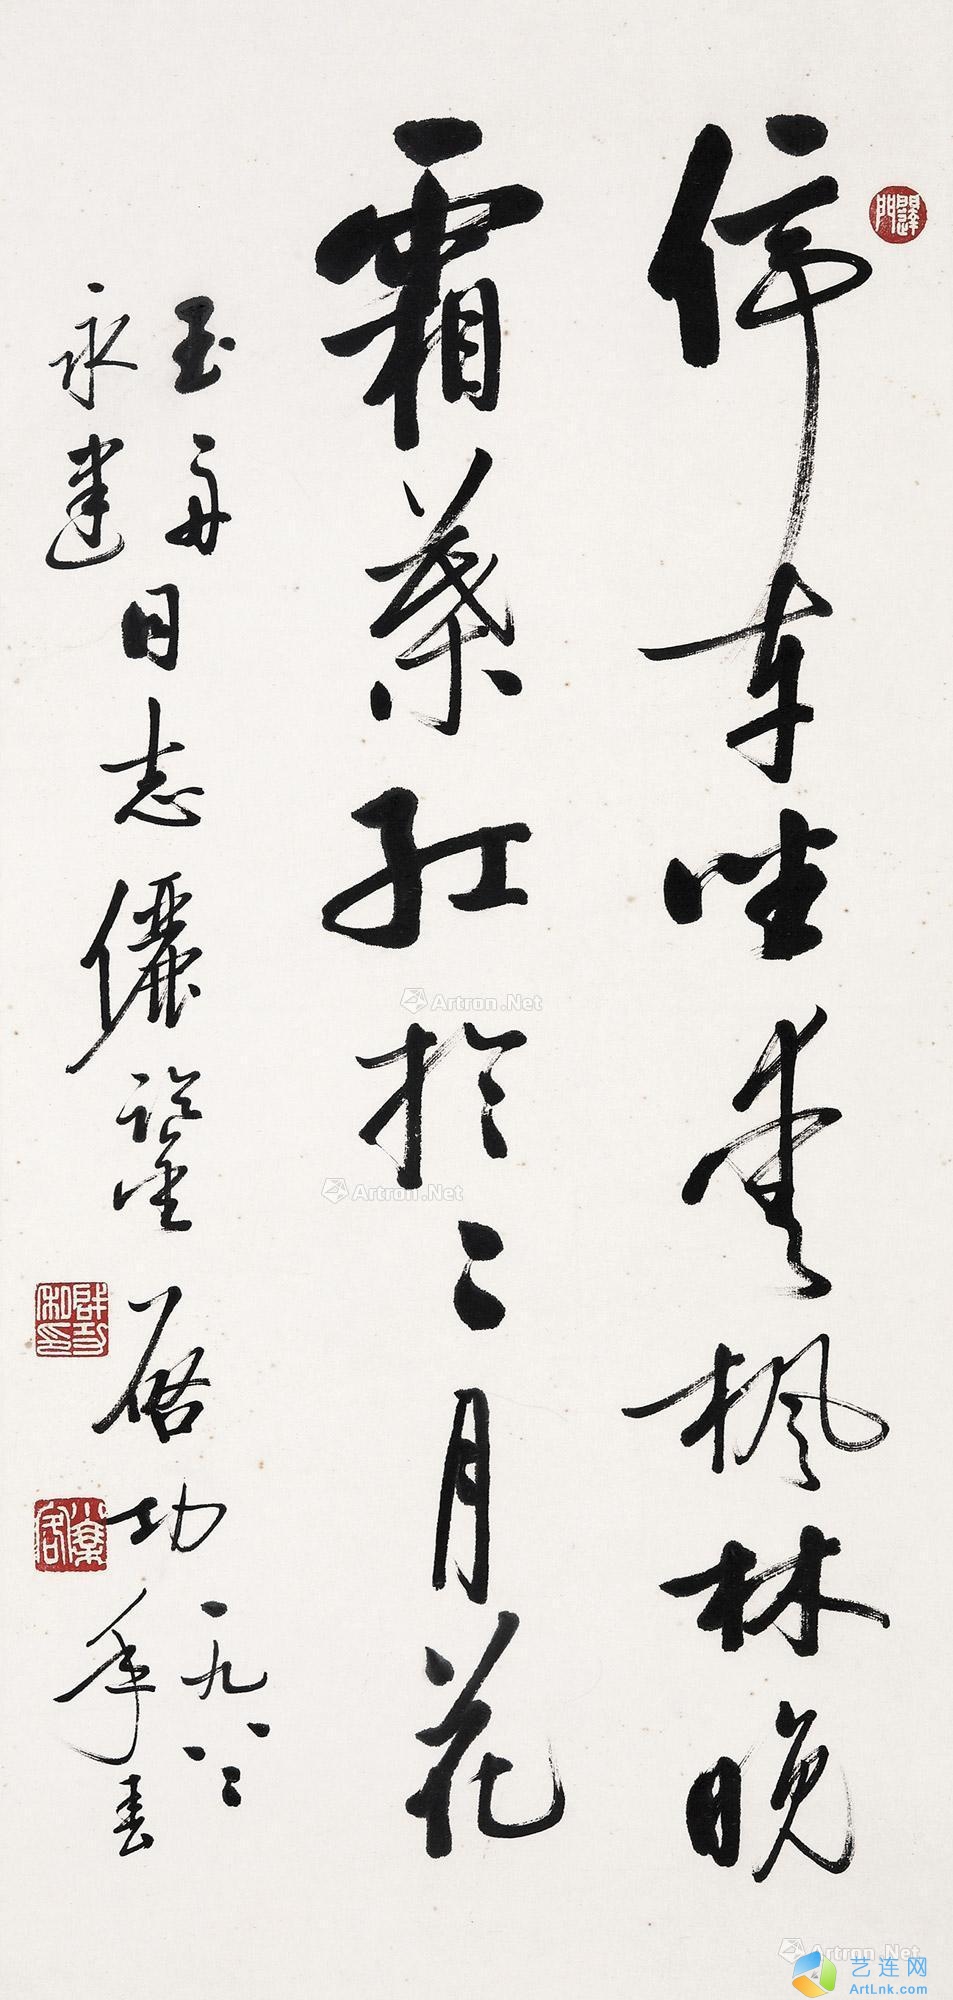 停车坐愛枫林晚
霜葉红於二月花
玉舟
永建
同志儷鑒
启功
一九八二
年春
Artron.Net
Artron.Net
Artron.Net
艺连网
ArtLnk.com